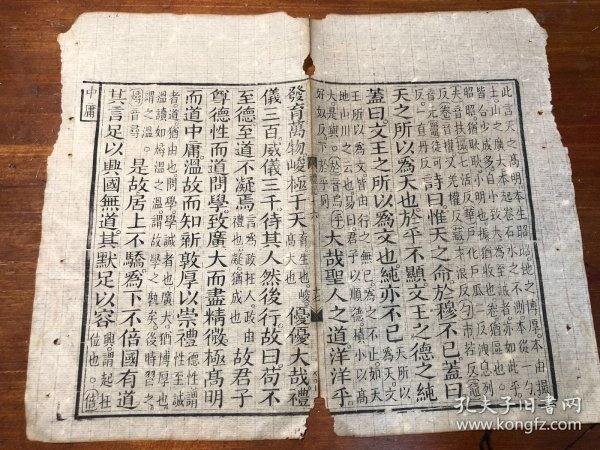 此言天之高明本生昭昭地之博厚本由撮
土山之廣大本起卷石水之不測本從一勺
皆合少成多自小致大為至誠者亦如此乎
昭昭猶耿耿小明也振猶收也卷猶區也
詩曰惟天之命於穆不已蓋曰
天之所以為天也於乎不顯文王之德之純
蓋曰文王之所以為文也純亦不已 天所以為天文
王所以為文皆由行之無已為之不止如天
地山川之云也易曰君子以順德積小以高
大是與 大哉聖人之道洋洋乎
發育萬物峻極于天 育生也峻高大也 優優大哉禮
儀三百威儀三千待其人然後行故曰苟不
至德至道不凝焉 言為政在人政由禮也凝猶成也 故君子
尊德性而道問學致廣大而盡精微極高明
而道中庸溫故而知新敦厚以崇禮 德性謂性至誠
者道猶由也問學學誠者也廣大猶博厚也
溫讀如燖溫之溫謂故學之孰矣後時習之
謂之溫 燖音尋 是故居上不驕為下不倍國有道
其言足以興國無道其默足以容 興謂起在位也 倍
中庸
孔夫子旧书网
www.kongfz.com